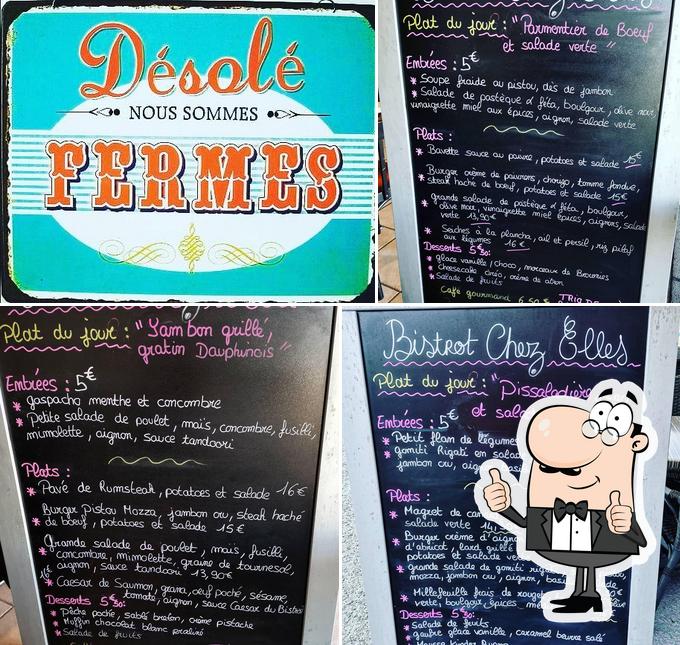 Désolé
NOUS SOMMES
FERMES
Plat du jour : "Parmentier de Boeuf
et salade verte"
Entrées : 5€
* Soupe froide au pistou, dés de jambon
* Salade de pastèque & féta, boulgour, olive noir,
vinaigrette miel aux épices, oignon, salade verte
Plats :
* Bavette sauce au poivre, potatoes et salade 15€
* Burger crème de poivrons, chorizo, tomme fondue,
steak haché de boeuf, potatoes et salade 15€
* Grande salade de pastèque & féta, boulgour,
olive noir, vinaigrette miel épices, oignons, salade
verte 13,90€
* Seiches à la plancha, ail et persil, riz pilaf
aux légumes 16€
Desserts 5€50 :
* glace vanille / choco, morceaux de Brownies
* Cheesecake Oréo, crème de citron
* Salade de fruits
Café gourmand 6,50€
Plat du jour : "Jambon grillé,
gratin Dauphinois"
Entrées : 5€
* gaspacho menthe et concombre
* Petite salade de poulet, maïs, concombre, fusilli,
mimolette, oignon, sauce tandoori
Plats :
* Pavé de Rumsteak, potatoes et salade 16€
* Burger Pistou Mozza, jambon cru, steak haché
de boeuf, potatoes et salade 15€
* Grande salade de poulet, maïs, fusilli,
concombre, mimolette, graine de tournesol,
oignon, sauce tandoori 13,90€
* Caesar de Saumon, grana, oeuf poché, sésame,
16€ tomate, oignon, sauce Caesar du Bistrot
Desserts 5€50 :
* Pêche poché, sablé breton, crème pistache
* Muffin chocolat blanc praliné
* Salade de fruits
Bistrot Chez Elles
Plat du jour : "Pissaladière
et sala
Entrées : 5€
* Petit flan de légumes
* gomiti Rigati en salad
jambon cru, oignon
Plats :
* Magret de can
salade verte
* Burger crème d'oign
d'abricot, lard grillé
potatoes et salade ve
* grande salade de gomiti
mozza, jambon cru, oignon, bas
* Millefeuille frais de rouget
verte, boulgour épices, miel
Desserts 5€50 :
* Salade de fruits
* gaufre glace vanille, caramel beurre salé
* Mousse Kinder Bueno